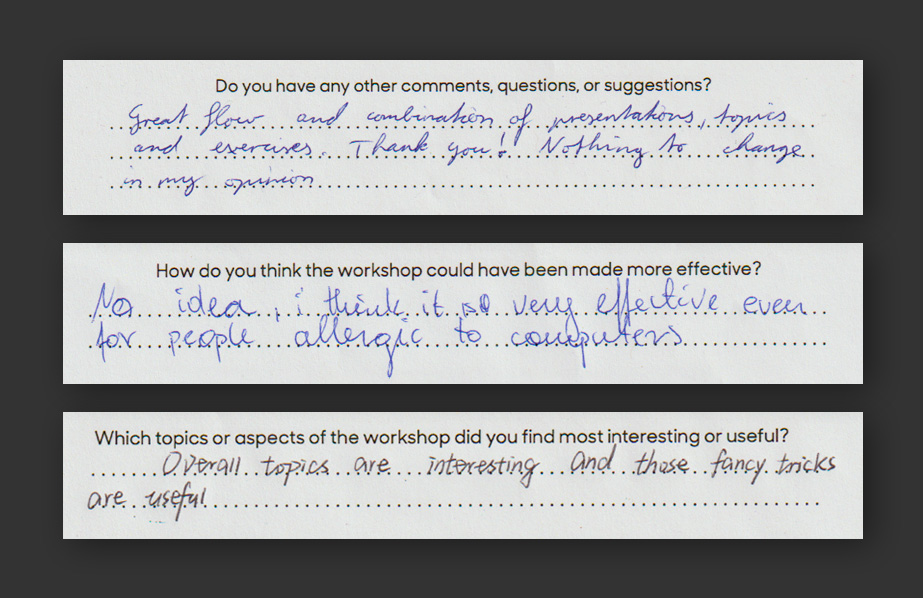 Do you have any other comments, questions, or suggestions?
Great flow and combination of presentations, topics
and exercises. Thank you! Nothing to change
in my opinion
How do you think the workshop could have been made more effective?
No idea, i think it is very effective even
for people allergic to computers
Which topics or aspects of the workshop did you find most interesting or useful?
Overall topics are interesting and those fancy tricks
are useful